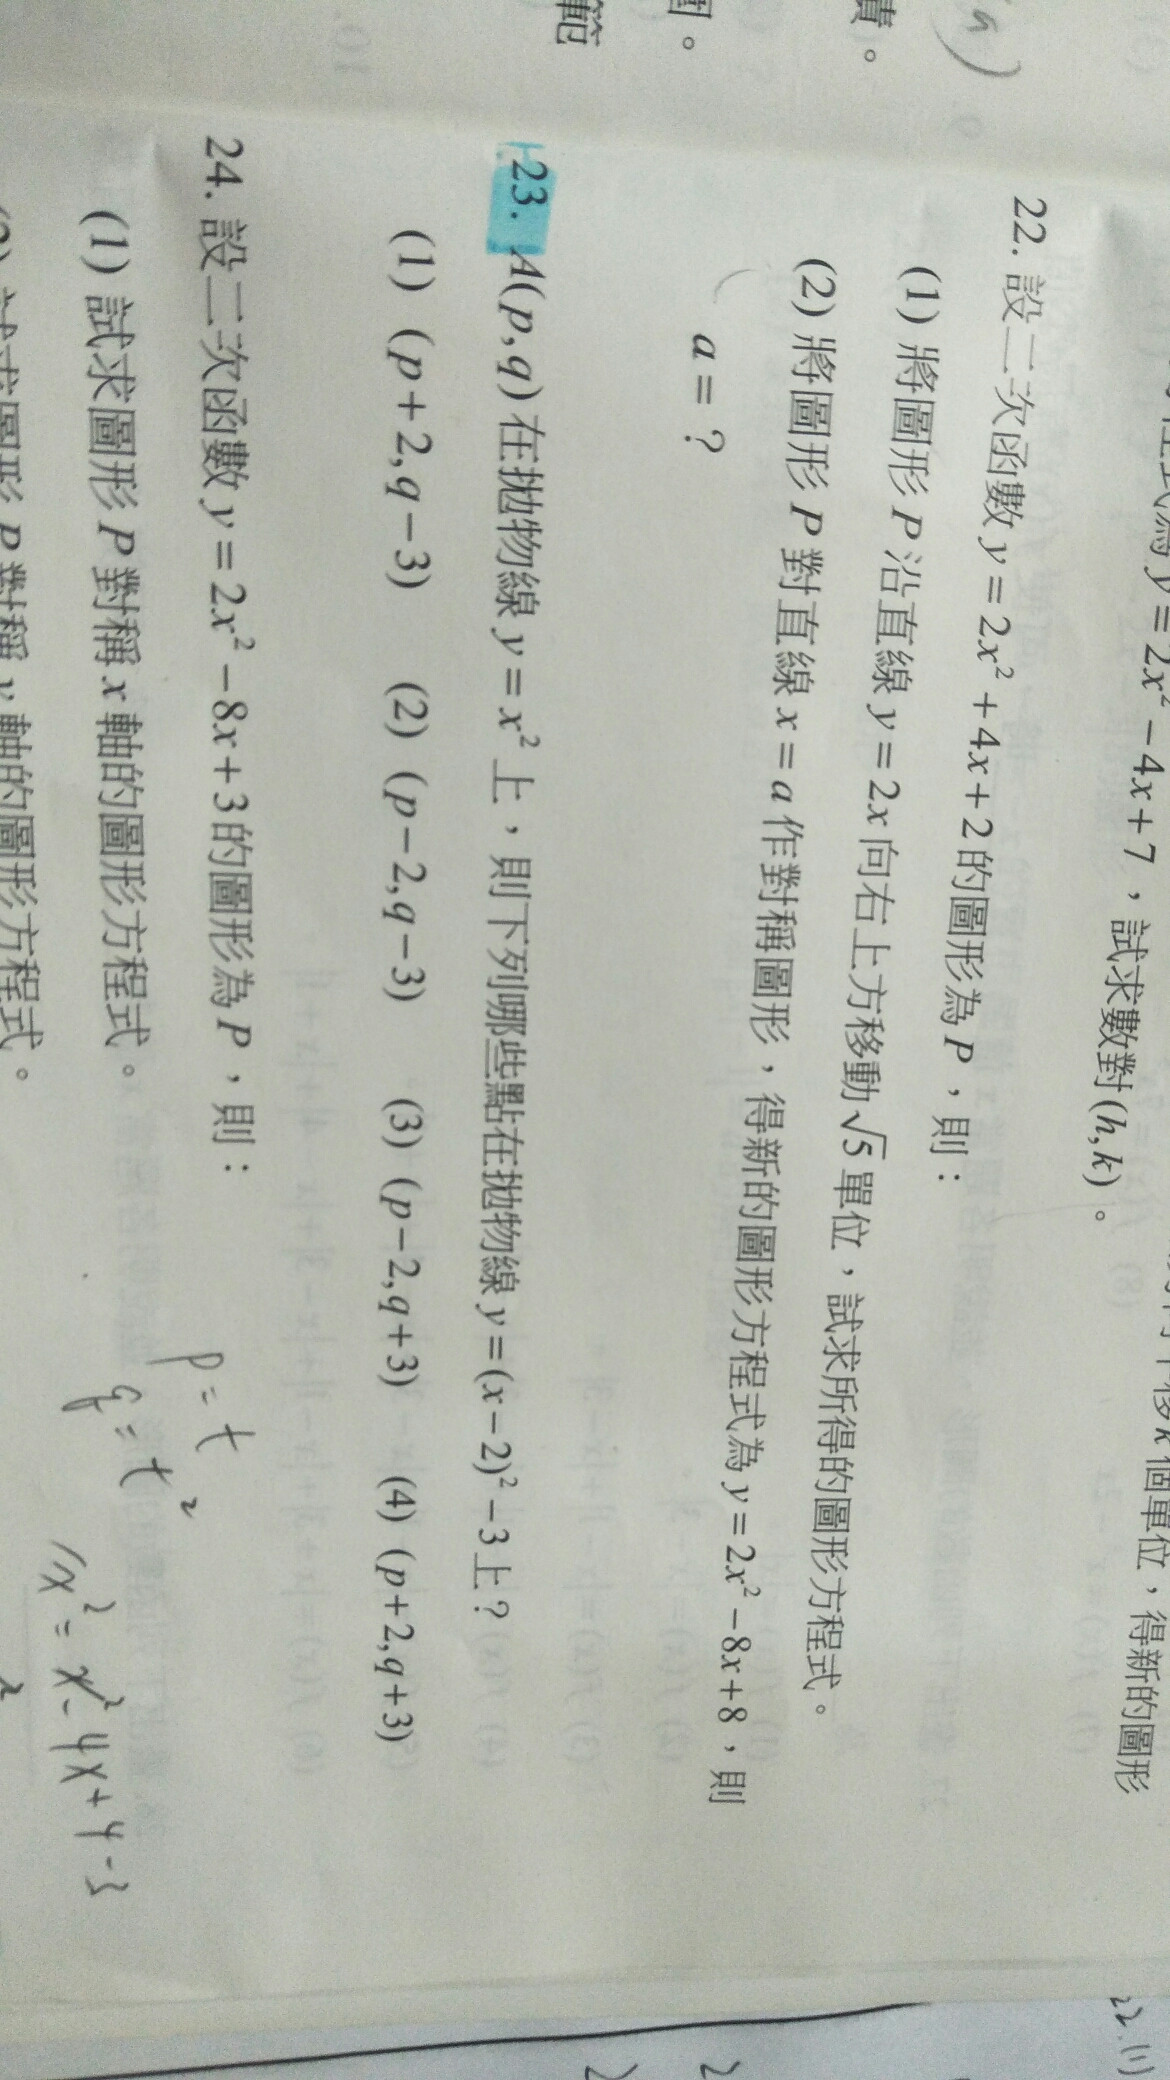 (a)
責。
圍。
範
程式為 y=2x²-4x+7，試求數對(h,k)。
移k個單位，得新的圖形
22. 設二次函數 y=2x²+4x+2的圖形為P，則：
(1) 將圖形P沿直線 y=2x向右上方移動√5單位，試求所得的圖形方程式。
(2) 將圖形P對直線 x=a作對稱圖形，得新的圖形方程式為 y=2x²-8x+8，則
a=？
23. A(p,q)在拋物線 y=x²上，則下列哪些點在拋物線 y=(x-2)²-3上？
(1) (p+2,q-3) (2) (p-2,q-3) (3) (p-2,q+3) (4) (p+2,q+3)
24. 設二次函數 y=2x²-8x+3的圖形為P，則：
(1) 試求圖形P對稱x軸的圖形方程式。
(2) 試求圖形P對稱y軸的圖形方程式。
p=t
q=t²
x²=x²-4x+4-3
2
22.(1)